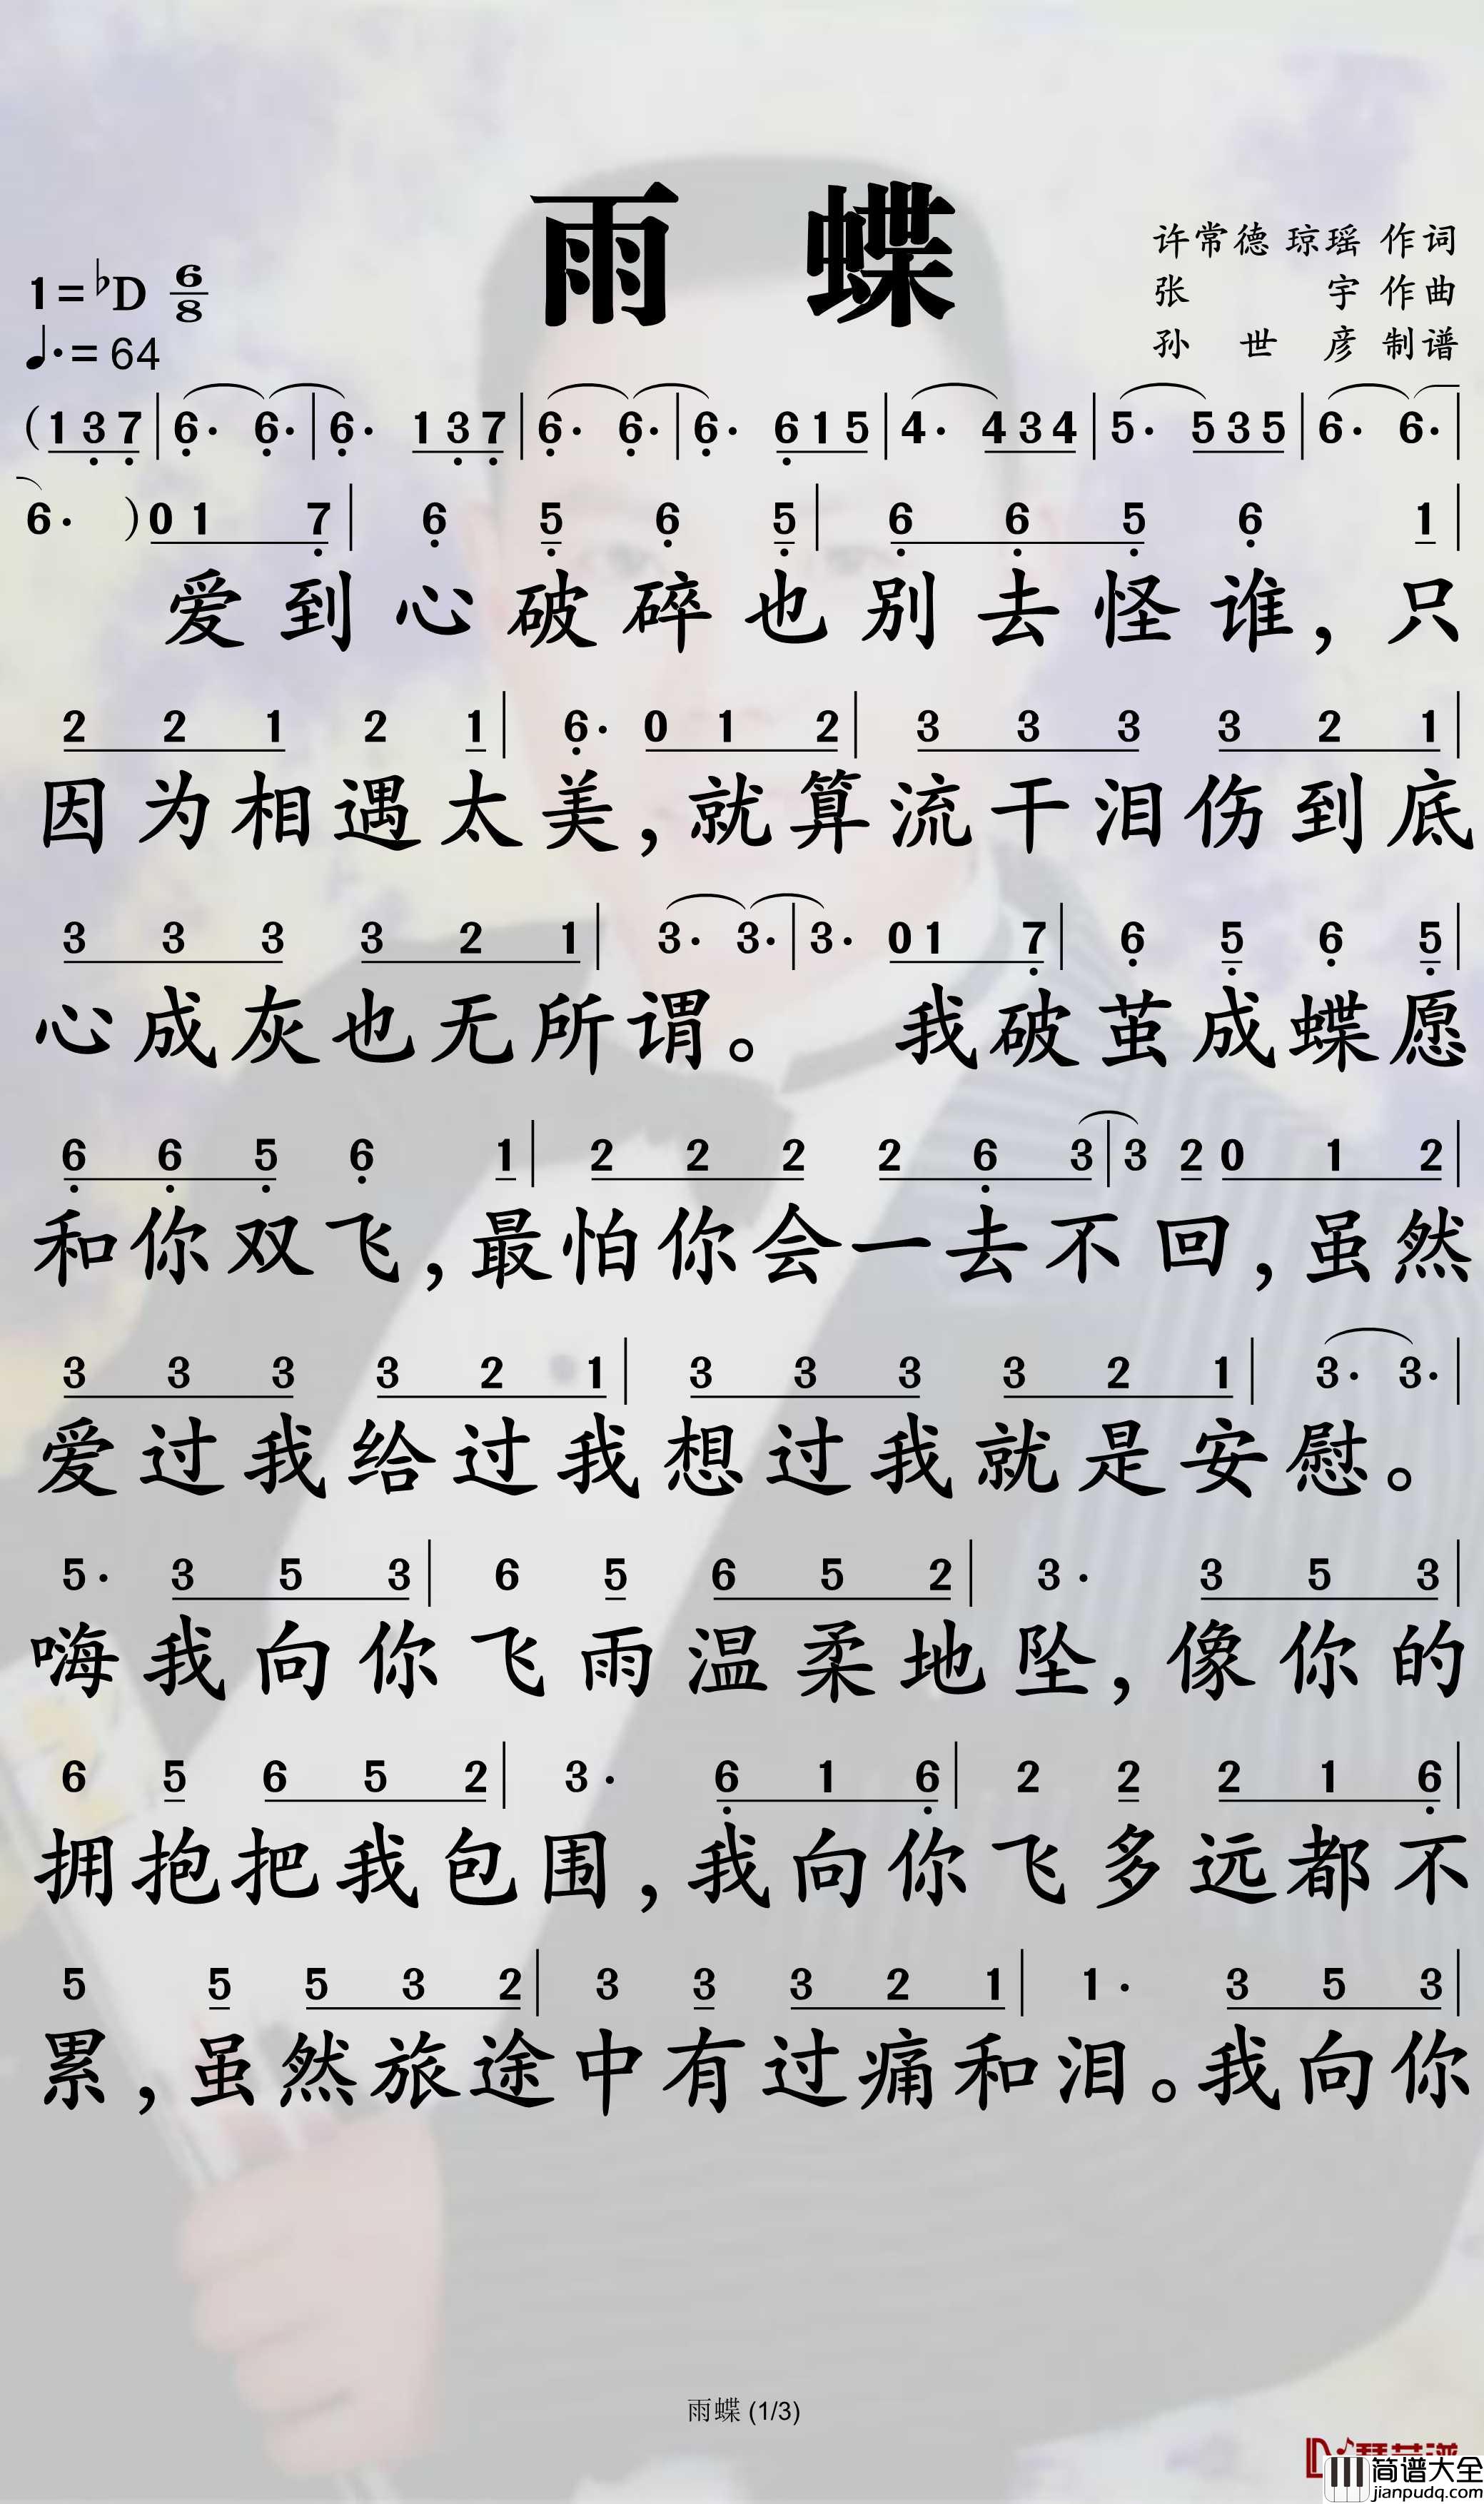 雨 蝶
许常德 琼瑶 作词
张 宇 作曲
孙 世 彦 制谱
1=♭D 6/8
♩.=64
(1 3 7 | 6. 6. | 6. 1 3 7 | 6. 6. | 6. 6 1 5 | 4. 4 3 4 | 5. 5 3 5 | 6. 6. |
6. ) 0 1 7 | 6 5 6 5 | 6 6 5 6 1 |
爱到心破碎也别去怪谁，只
2 2 1 2 1 | 6. 0 1 2 | 3 3 3 3 2 1 |
因为相遇太美，就算流干泪伤到底
3 3 3 3 2 1 | 3. 3. | 3. 0 1 7 | 6 5 6 5 |
心成灰也无所谓。 我破茧成蝶愿
6 6 5 6 1 | 2 2 2 2 6 3 | 3 2 0 1 2 |
和你双飞，最怕你会一去不回，虽然
3 3 3 3 2 1 | 3 3 3 3 2 1 | 3. 3. |
爱过我给过我想过我就是安慰。
5. 3 5 3 | 6 5 6 5 2 | 3. 3 5 3 |
嗨我向你飞雨温柔地坠，像你的
6 5 6 5 2 | 3. 6 1 6 | 2 2 2 1 6 |
拥抱把我包围，我向你飞多远都不
5 5 5 3 2 | 3 3 3 2 1 | 1. 3 5 3 |
累，虽然旅途中有过痛和泪。我向你
雨蝶 (1/3)
简谱大全
jianpudq.com